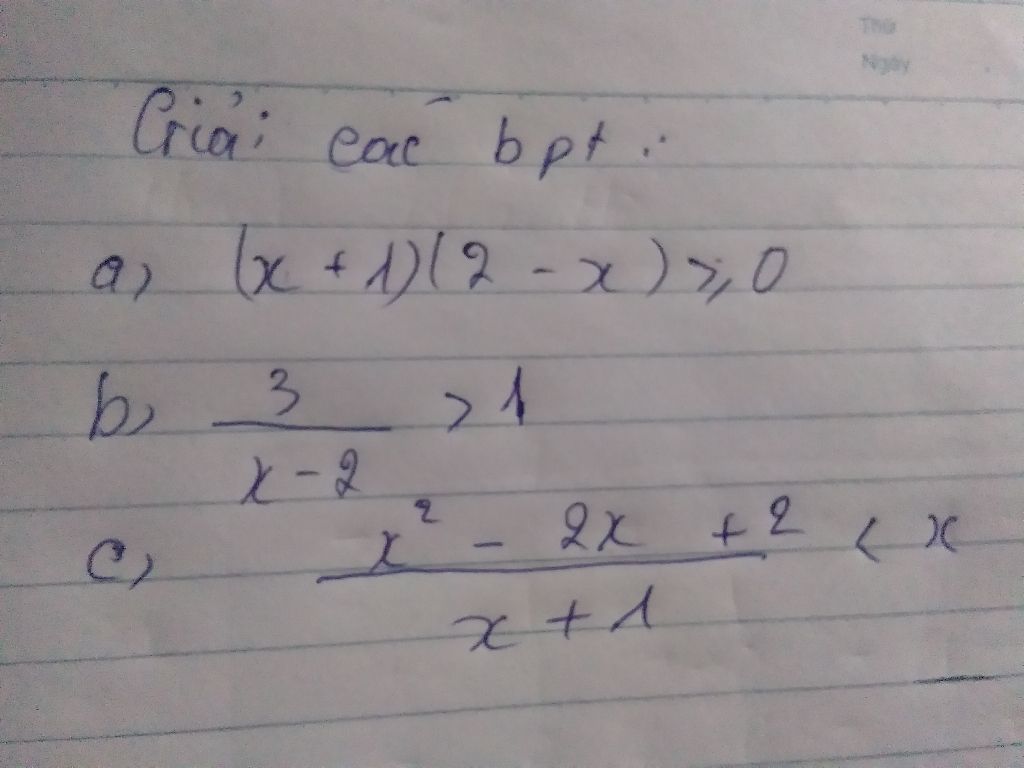 Thứ
Ngày
Giải các bpt :
a) (x + 1)(2 - x) ≥ 0
b) 3/(x - 2) > 1
c) (x² - 2x + 2)/(x + 1) < x